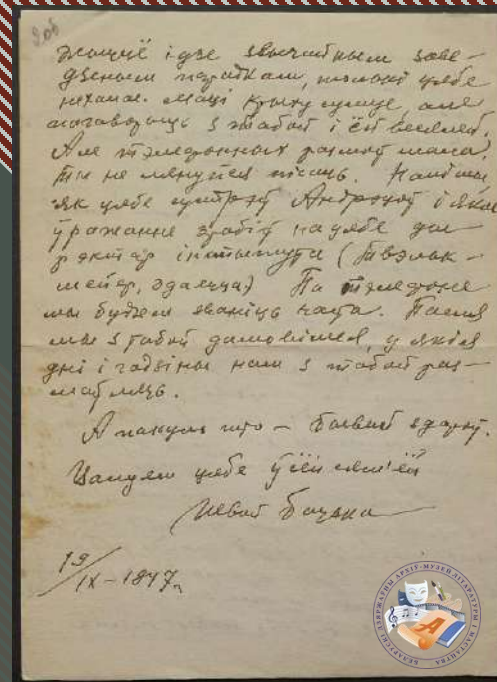 жыццё ідзе звычайным заве-
дзеным парадкам, толькі цябе
няхапае. Маці крыху сумуе, але
пагаворыць з табой і ёй веселей.
Але тэлефонных размоў мала,
ты не лянуйся пісаць. Напішы,
як цябе сустрэў Андрэеў і якое
ўражанне зрабіў на цябе ды
рэктар інстытута (
мейер, здаецца) Па тэлефоне
мы будзем званіць часта. Пасля
мы з табой дамовімся, у якія
дні і гадзіны нам з табой раз-
маўляць.
А пакуль што – бывай здароў.
Цалуем цябе ўсёй сям'ёй
Бацька
19/IX – 1947 г.
БЕЛАРУСКІ ДЗЯРЖАЎНЫ АРХІЎ-МУЗЕЙ ЛІТАРАТУРЫ І МАСТАЦТВА